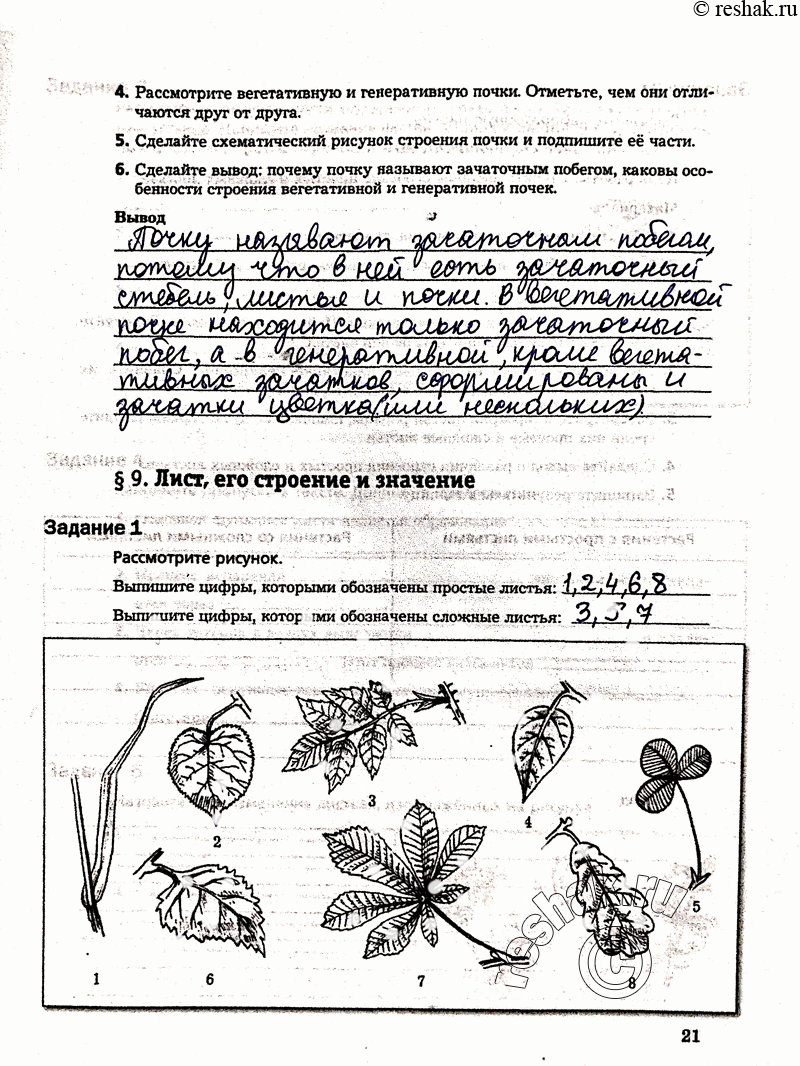 © reshak.ru
4. Рассмотрите вегетативную и генеративную почки. Отметьте, чем они отли-
чаются друг от друга.
5. Сделайте схематический рисунок строения почки и подпишите её части.
6. Сделайте вывод: почему почку называют зачаточным побегом, каковы осо-
бенности строения вегетативной и генеративной почек.
Вывод
Почку называют зачаточным побегом,
потому что в ней есть зачаточный
стебель, листья и почки. В вегетативной
почке находится только зачаточный
побег, а в генеративной, кроме вегета-
тивных зачатков, сформированы и
зачатки цветка (или нескольких)
§ 9. Лист, его строение и значение
Задание 1
Рассмотрите рисунок.
Выпишите цифры, которыми обозначены простые листья: 1, 2, 4, 6, 8
Выпишите цифры, которыми обозначены сложные листья: 3, 5, 7
3
2
4
5
1
6
7
8
reshak.ru
©
21